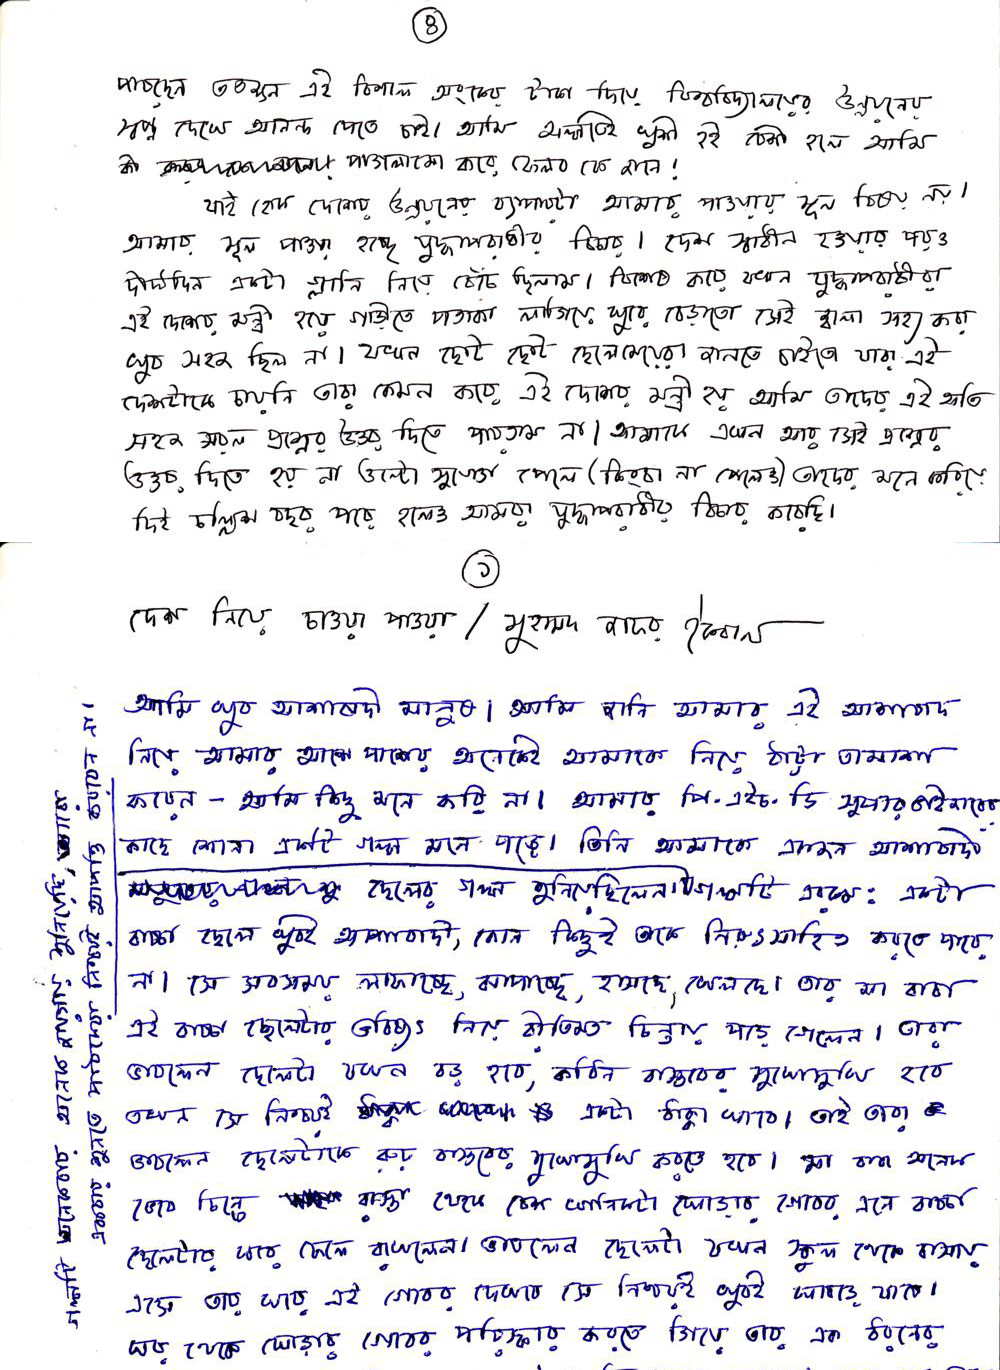 ৪
পারছেন তখন এই বিশাল অংকের টাকা দিয়ে বিশ্ববিদ্যালয়ের উন্নয়নের
স্বপ্ন দেখে আনন্দ পেতে চাই। আমি অল্পতেই খুশী হই বেশী হলে আমি
কী পাগলামো করে ফেলব কে জানে!
যাই হোক দেশের উন্নয়নের ব্যাপারটা আমার পাওয়ার মূল বিষয় নয়।
আমার মূল পাওয়া হচ্ছে যুদ্ধাপরাধীর বিচার। দেশ স্বাধীন হওয়ার পরও
দীর্ঘদিন একটা গ্লানি নিয়ে বেঁচে ছিলাম। বিশেষ করে যখন যুদ্ধাপরাধীরা
এই দেশের মন্ত্রী হয়ে গাড়ীতে পতাকা লাগিয়ে ঘুরে বেড়াতো সেই জ্বালা সহ্য করা
খুব সহজ ছিল না। যখন ছোট ছোট ছেলেমেয়েরা জানতে চাইতো যারা এই
দেশটাকে চায়নি তারা কেমন করে এই দেশের মন্ত্রী হয় আমি তাদের এই অতি
সহজ সরল প্রশ্নের উত্তর দিতে পারতাম না। আমাকে এখন আর সেই প্রশ্নের
উত্তর দিতে হয় না উল্টো সুযোগ পেলে (কিংবা না পেলেও) তাদের মনে করিয়ে
দিই চল্লিশ বছর পরে হলেও আমরা যুদ্ধাপরাধীর বিচার করেছি।
১
দেশ নিয়ে চাওয়া পাওয়া / মুহম্মদ জাফর ইকবাল
আমি খুব আশাবাদী মানুষ। আমি জানি আমার এই আশাবাদ
নিয়ে আমার আশে পাশের অনেকেই আমাকে নিয়ে ঠাট্টা তামাশা
করেন – আমি কিছু মনে করি না। আমার পি.এইচ.ডি সুপারভাইজারের
কাছে শোনা একটা গল্প মনে পড়ে। তিনি আমাকে একজন আশাবাদী
ছেলের গল্প শুনিয়েছিলেন। গল্পটি এরকম: একটা
বাচ্চা ছেলে খুবই আশাবাদী, কোন কিছুই তাকে নিরুৎসাহিত করতে পারে
না। সে সবসময় লাফাচ্ছে, ঝাপাচ্ছে, হাসছে, খেলছে। তার মা বাবা
এই বাচ্চা ছেলেটার ভবিষ্যৎ নিয়ে রীতিমত চিন্তায় পড়ে গেলেন। তারা
ভাবলেন ছেলেটা যখন বড় হবে, কঠিন বাস্তবের মুখোমুখি হবে
তখন সে নিশ্চয়ই একটা ধাক্কা খাবে। তাই তারা
ভাবলেন ছেলেটাকে রূঢ় বাস্তবের মুখোমুখি করতে হবে। মা বাবা অনেক
ভেবে চিন্তে রাস্তা থেকে বেশ খানিকটা ঘোড়ার গোবর এনে বাচ্চা
ছেলেটার ঘরে ফেলে রাখলেন। ভাবলেন ছেলেটা যখন স্কুল থেকে বাসায়
এসে তার ঘরে এই গোবর দেখবে সে নিশ্চয়ই খুবই ঘাবড়ে যাবে।
ঘর থেকে ঘোড়ার গোবর পরিস্কার করতে গিয়ে তার এক ধরনের